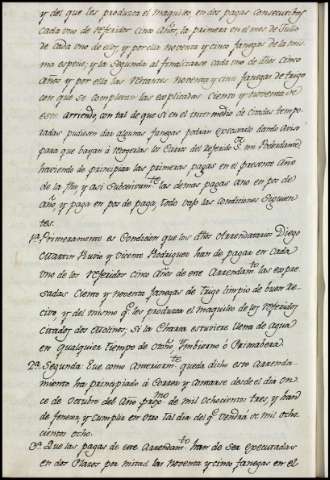 y del que les produzca el maquileo, en dos pagas consecutivas
cada uno de referidos cinco años, la primera en el mes de Julio
de cada uno de ellos, y por ella noventa y cinco fanegas de la mis-
ma especie; y la segunda al finalizarse cada uno de dhos cinco
años y por ella las restantes noventa y cinco fanegas de trigo
con que se completan las explicadas ciento y noventa de
este arriendo, con tal de que si en el intermedio de citadas tempo-
radas pudiesen dar algunas fanegas podran executarlo dando aviso
para que bayan á recogerlas los carros del referido Sr. mi Poderdante
haviendo de principiar las primeras pagas en el presente año
de la fha y asi subcesivamte las demas pagas año en pos de
año, y paga en pos de paga, todo vajo las condiciones siguien-
tes.
1ª Primeramente es condicion que los dhos Arrendatarios Diego
Martin Rubio y Vicente Rodriguez han de pagar en cada
uno de los referidos cinco años de este Arrendamto las expre-
sadas ciento y noventa fanegas de trigo limpio de buen re-
civo y del mismo qe les produzca el maquileo de los referidos
citados dos molinos, si la charca estuviere llena de agua
en qualquiera tiempo de otoño, Imbierno ó Primabera.
2ª Segunda: Que como anteriormte queda dicho este arrenda-
miento ha principiado á correr y contarse desde el dia on-
ce de octubre del año pmo pdo de mil ochocientos tres, y hará
de fenecer y cumplir en otro tal dia del qe vendrá de mil ocho-
cientos ocho.
3ª Que las pagas de este Arrendamto han de ser executadas
en dos plazos por mitad las noventa y cinco fanegas en el